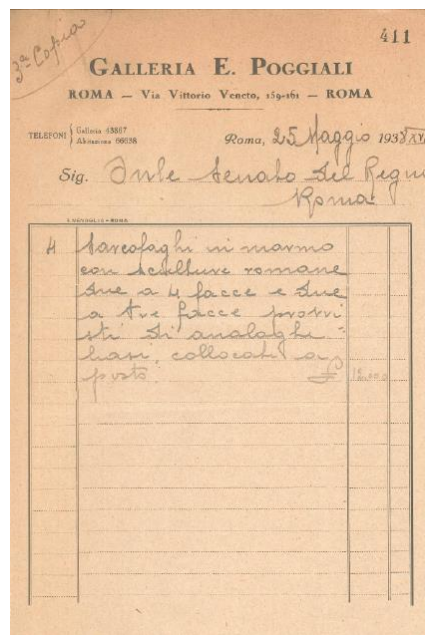 3ª Copia
411
GALLERIA E. POGGIALI
ROMA — Via Vittorio Veneto, 159-161 — ROMA
TELEFONI { Galleria 43887
Abitazione 66638
Roma, 25 Maggio 1938 XVI
Sig. On/le Senato del Regno
Roma
4 Sarcofaghi in marmo
con sculture romane
due a 4 facce e due
a tre facce provvi
sti di analoghe
basi, collocati a
posto. £ 12.000